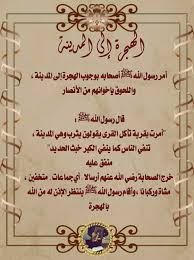 الهجرة إلى المدينة
أمر رسول الله ﷺ أصحابه بوجوب الهجرة إلى المدينة ،
واللحوق بإخوانهم من الأنصار
قال رسول الله ﷺ :
"أمرت بقرية تأكل القرى يقولون يثرب وهي المدينة ،
تنفي الناس كما ينفي الكير خبث الحديد"
متفق عليه
خرج الصحابة رضي الله عنهم أرسالا , أي جماعات , متخفين ,
مشاة وركبانا , وأقام رسول الله ﷺ ينتظر الإذن له من الله
بالهجرة